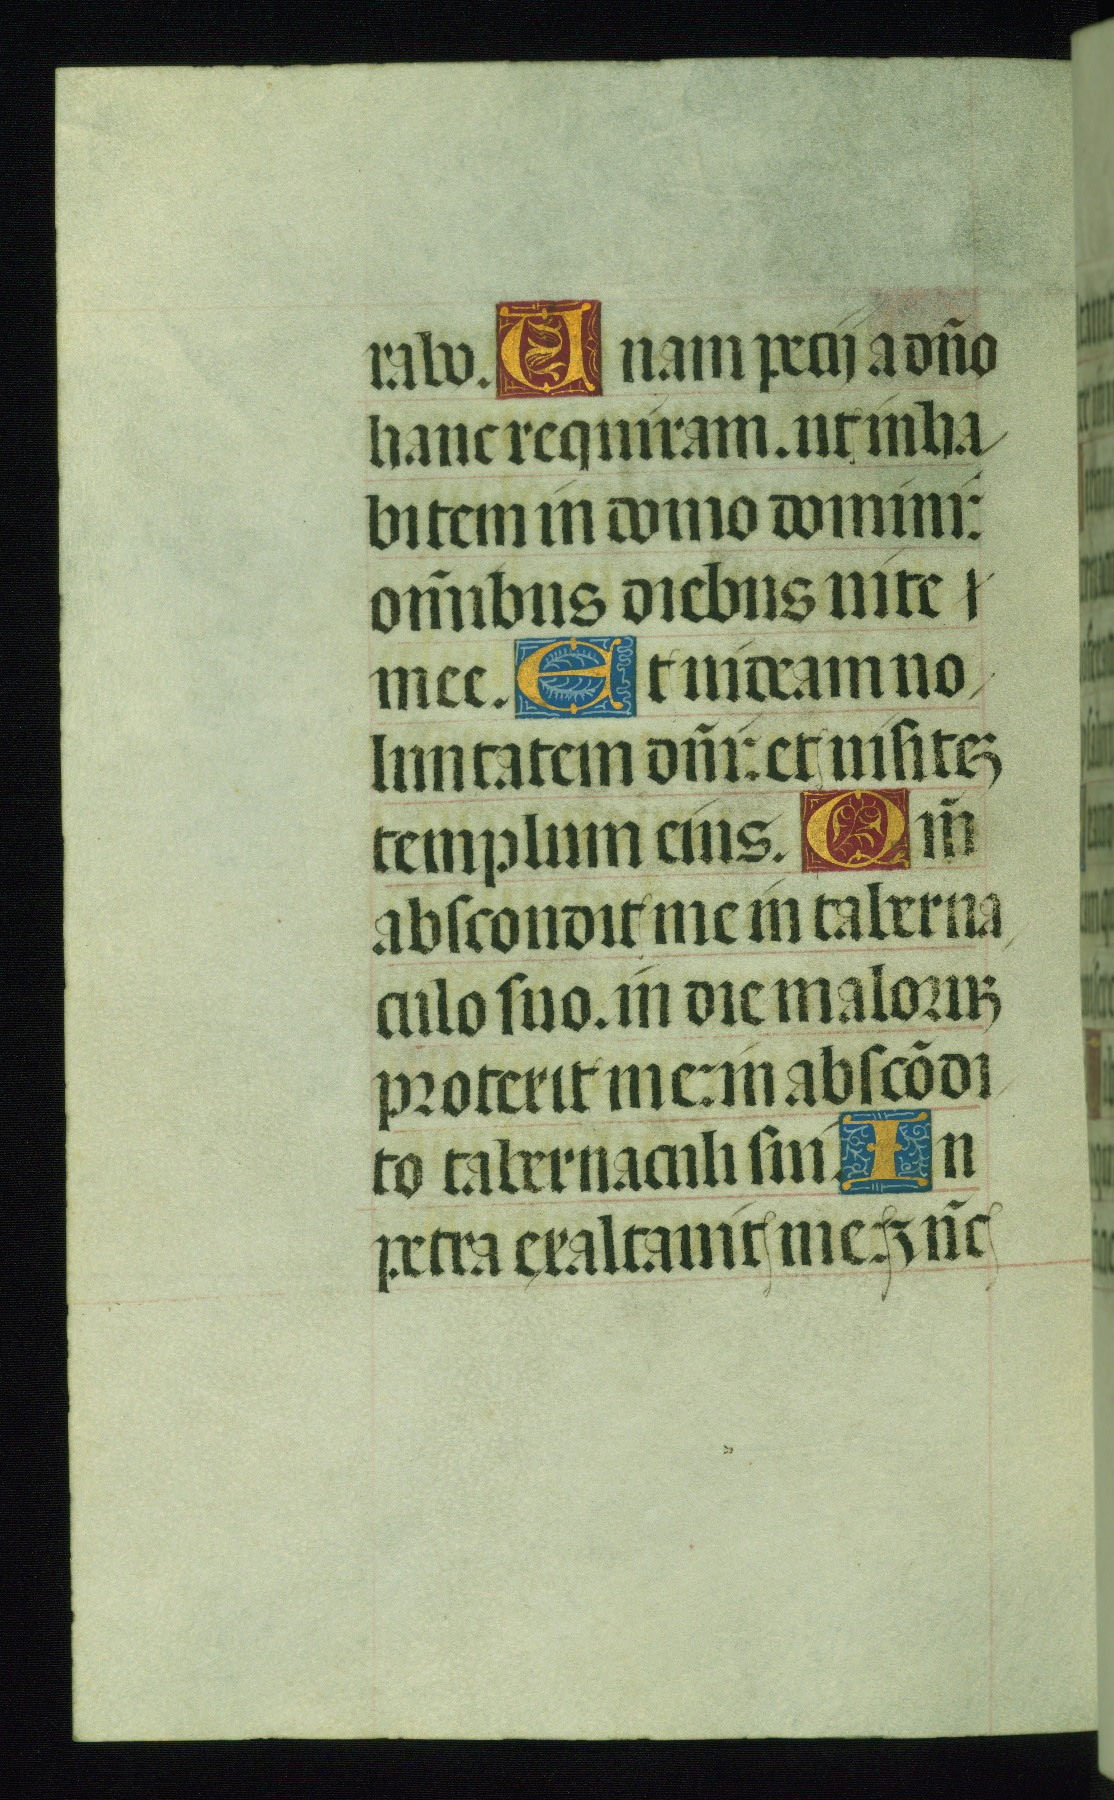 rabo. Unam petij a dn̄o
hanc requiram. ut inha
bitem in domo domini:
om̄ibus diebus uite
mee. Et uideam uo
luntatem dn̄i: et uisiteꝫ
templum eius. Qm̄
abscondit me in taberna
culo suo. in die maloruꝫ
proterit me: in abscōdi
to tabernaculi sui. In
petra exaltauit me: ꝫ nc̄